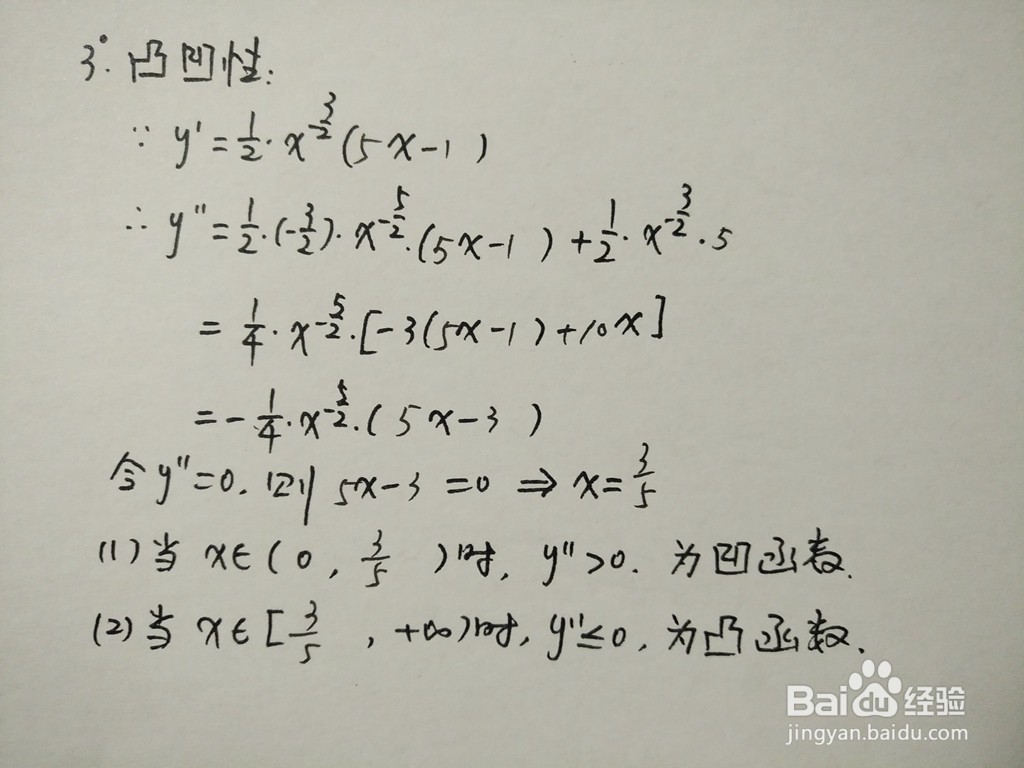 3°. 凸凹性:
∵ y' = 1/2 · x^(-3/2) (5x-1)
∴ y'' = 1/2 · (-3/2) · x^(-5/2) · (5x-1) + 1/2 · x^(-3/2) · 5
= 1/4 · x^(-5/2) · [-3(5x-1)+10x]
= -1/4 · x^(-5/2) · (5x-3)
令y''=0, 则 5x-3=0 ⇒ x=3/5
(1) 当 x∈(0, 3/5)时, y''>0. 为凹函数.
(2) 当 x∈[3/5, +∞)时, y''≤0, 为凸函数.
Bai du 经验
jingyan.baidu.com